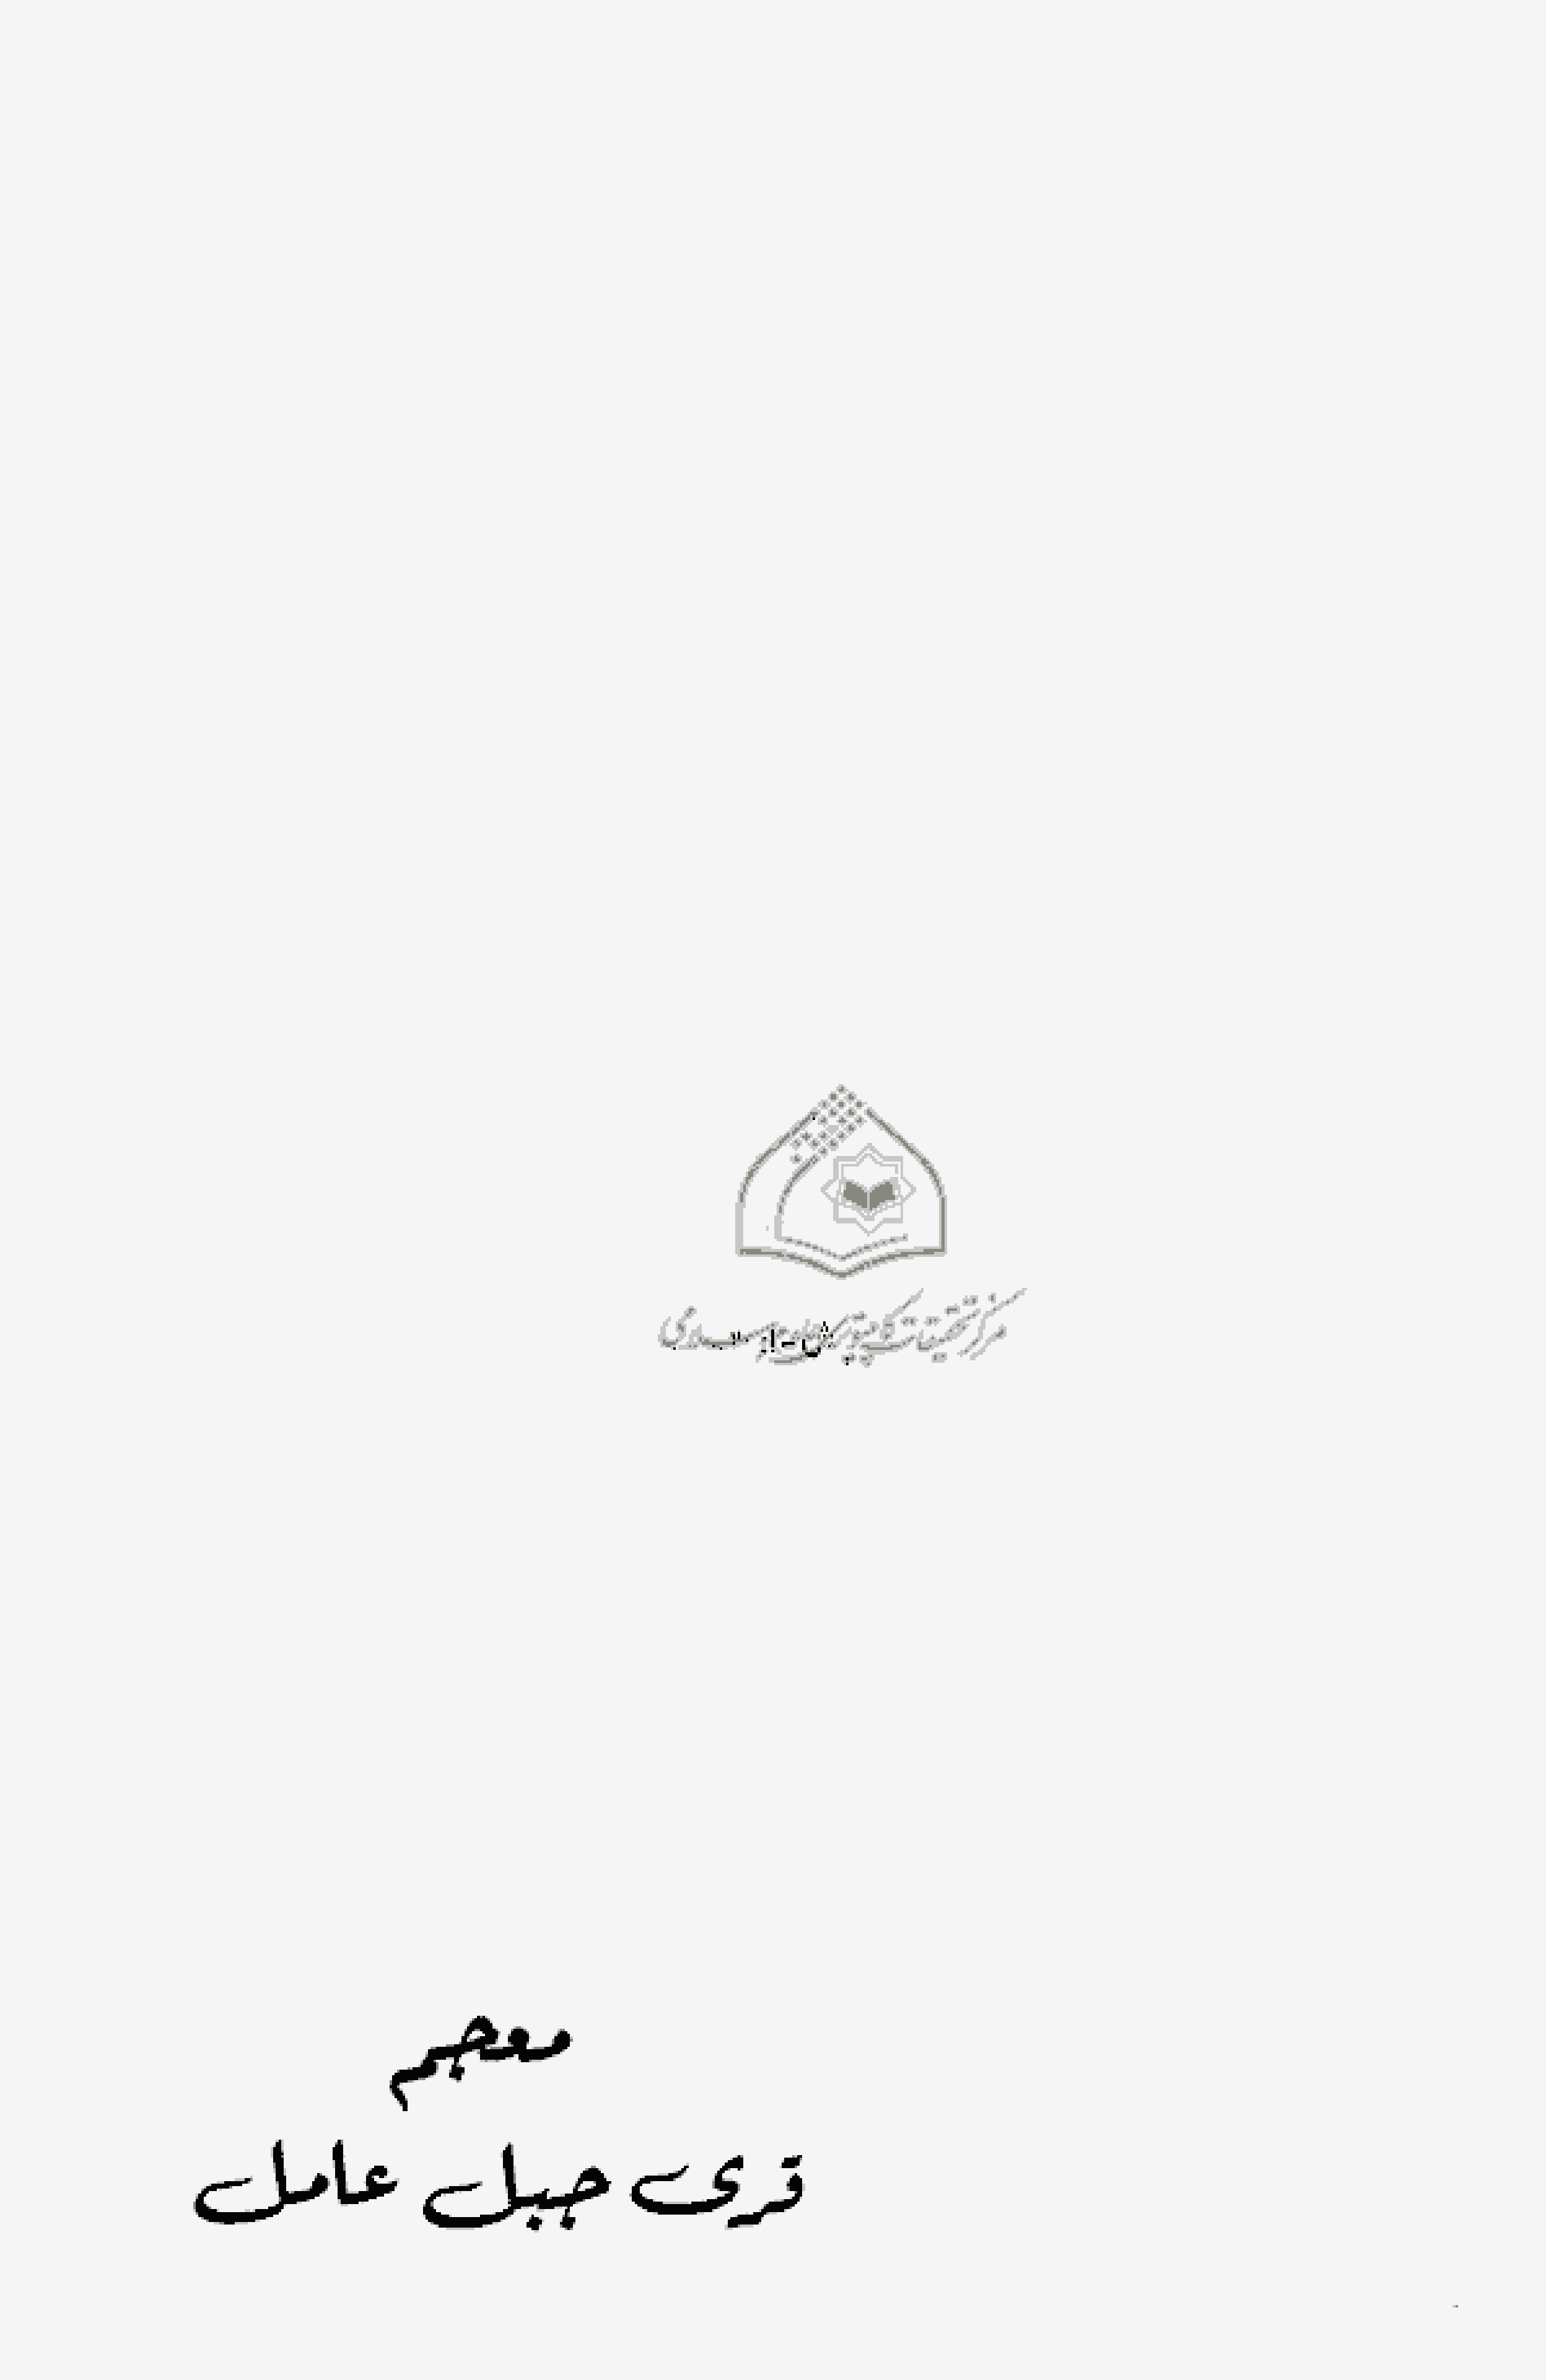 مرکز تحقیقات کامپیوتری علوم اسلامی
معجم
قرى جبل عامل